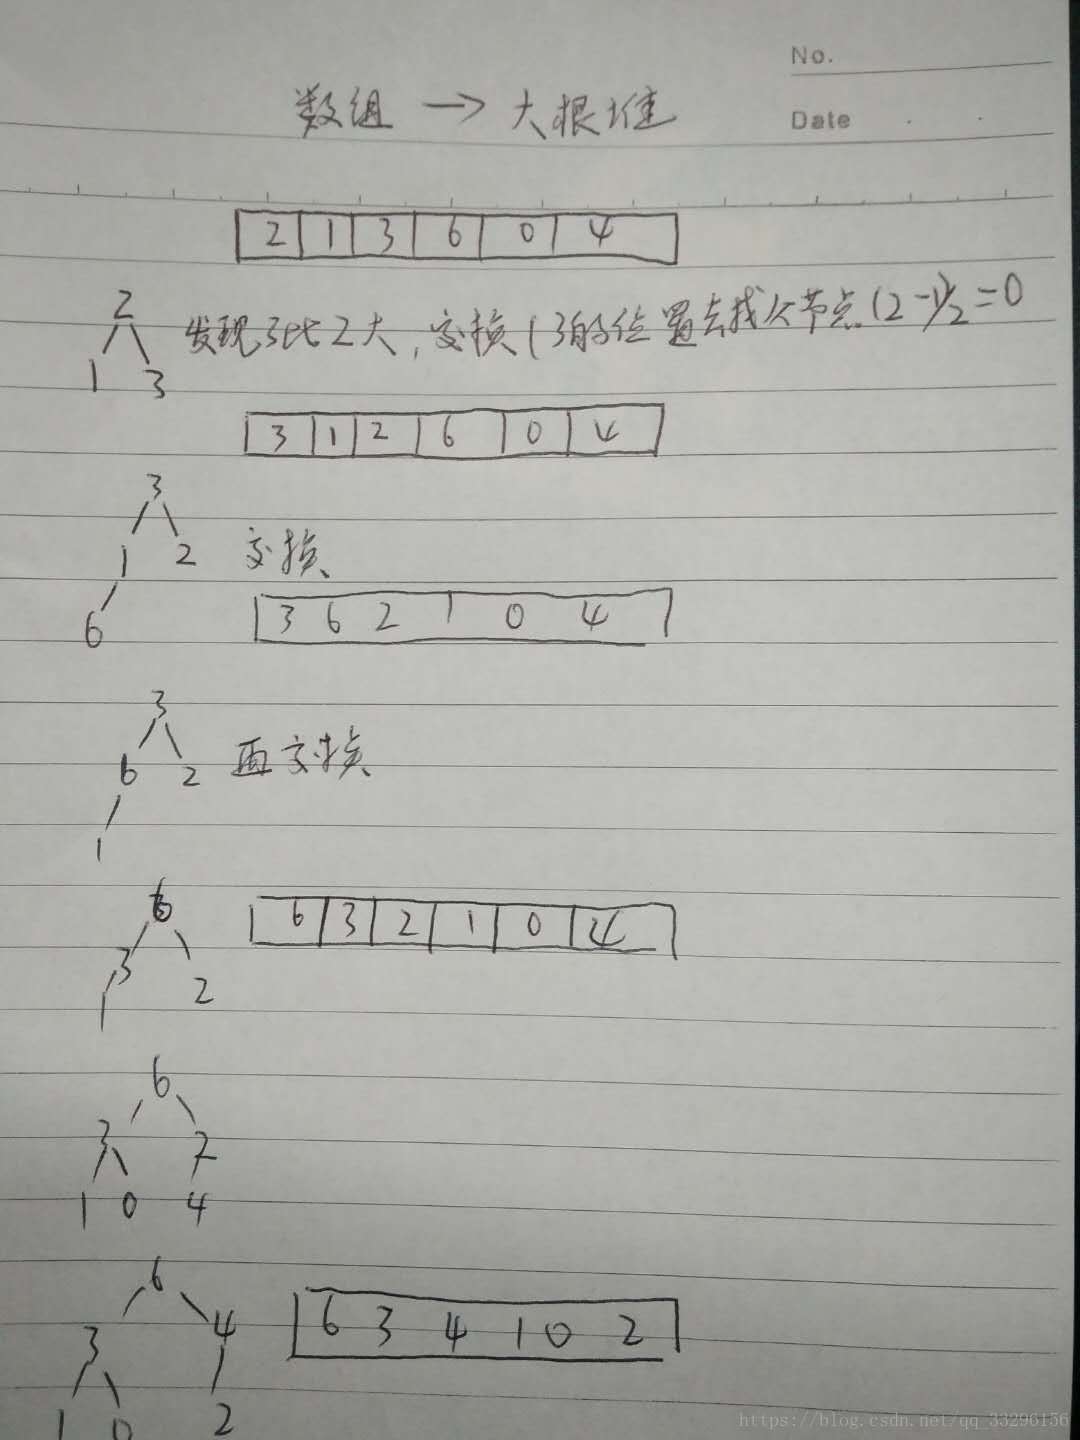 No.
数组 → 大根堆
Date
2 1 3 6 0 4
2
发现3比2大,交换(3的位置去找父节点(2-1)/2=0
1 3
3 1 2 6 0 4
3
1 2 交换
6
3 6 2 1 0 4
3
6 2 再交换
1
6 3 2 1 0 4
6
3
2
1
6
3 2
1 0 4
6
3 4
6 3 4 1 0 2
1 0 2
https://blog.csdn.net/qq_33296156